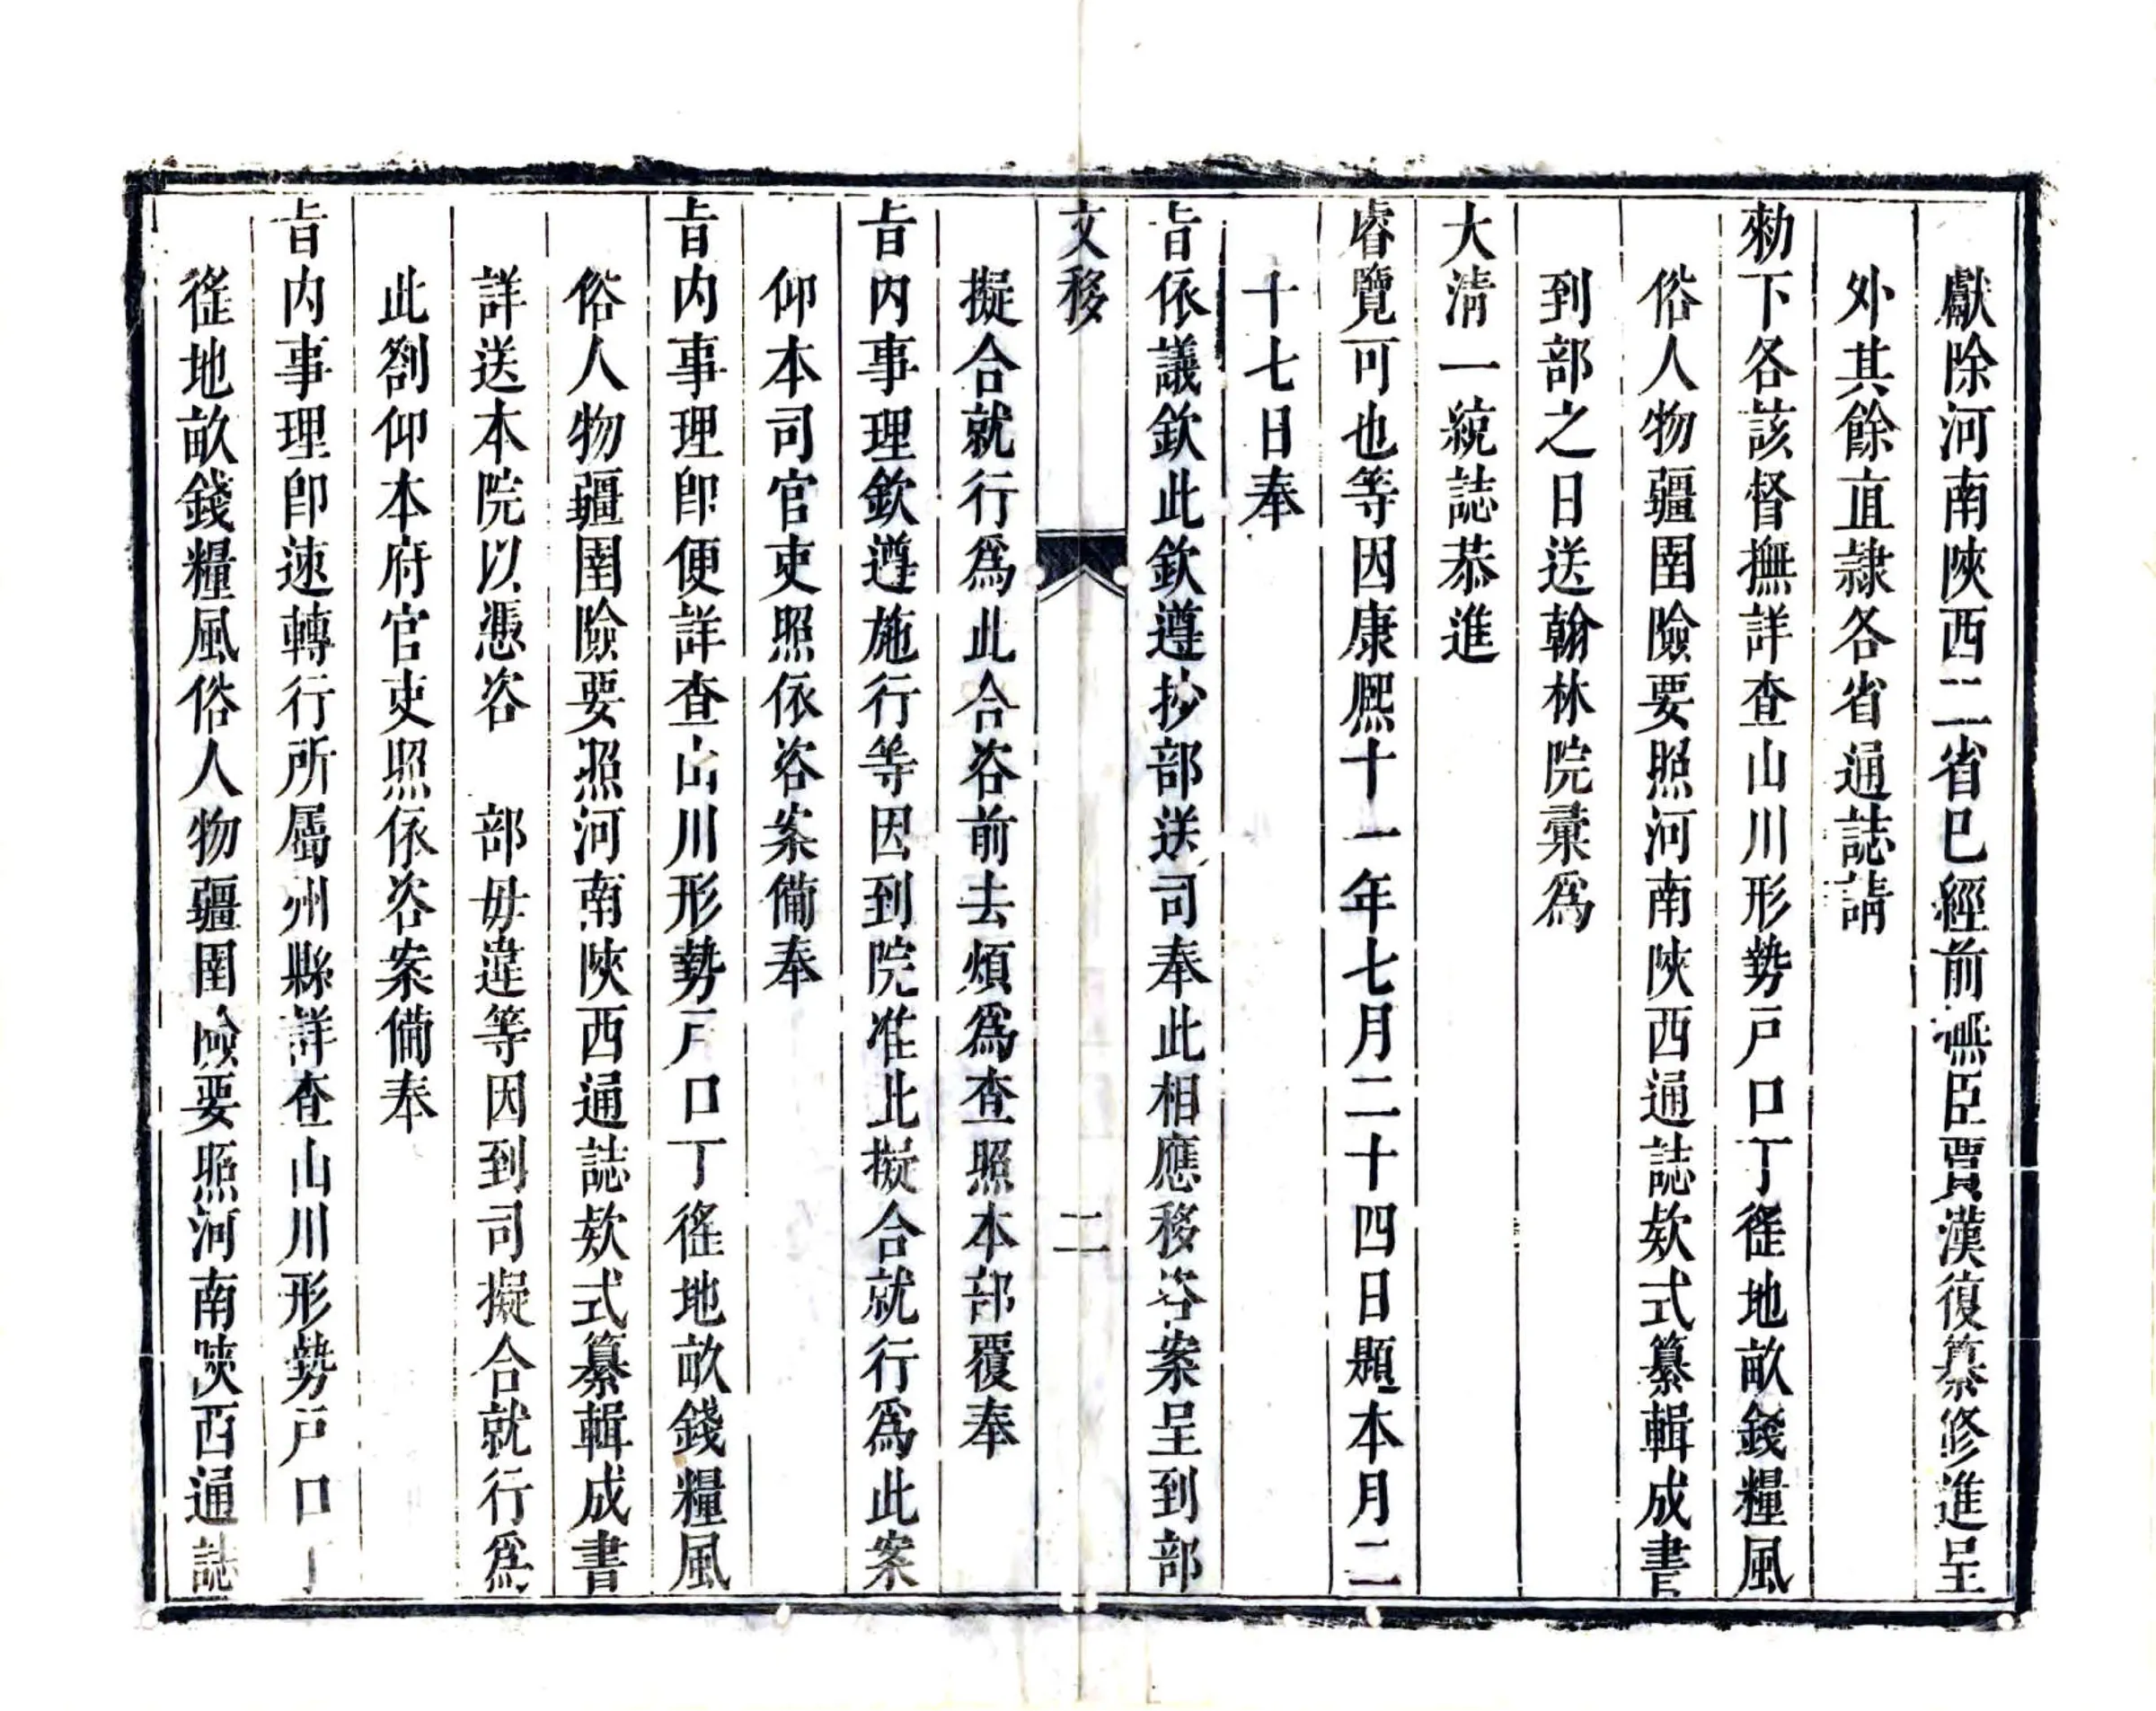 獻除河南陝西二省已經前撫臣賈漢復纂修進呈
外其餘直隷各省通誌請
勅下各該督撫詳查山川形勢戸口丁徭地畝錢糧風
俗人物疆圉險要照河南陝西通誌欵式纂輯成書
到部之日送翰林院彚爲
大淸一統誌恭進
睿覽可也等因康熈十一年七月二十四日題本月二
十七日奉
㫖依議欽此欽遵抄部送司奉此相應移咨案呈到部
文移 二
擬合就行爲此合咨前去煩爲查照本部覆奉
㫖内事理欽遵施行等因到院准此擬合就行爲此案
仰本司官吏照依咨案備奉
㫖内事理卽便詳查山川形勢戸口丁徭地畝錢糧風
俗人物疆圉險要照河南陝西通誌欵式纂輯成書
詳送本院以憑咨 部毋違等因到司擬合就行爲
此劄仰本府官吏照依咨案備奉
㫖内事理卽速轉行所屬州縣詳查山川形勢戸口丁
徭地畝錢糧風俗人物疆圉險要照河南陝西通誌